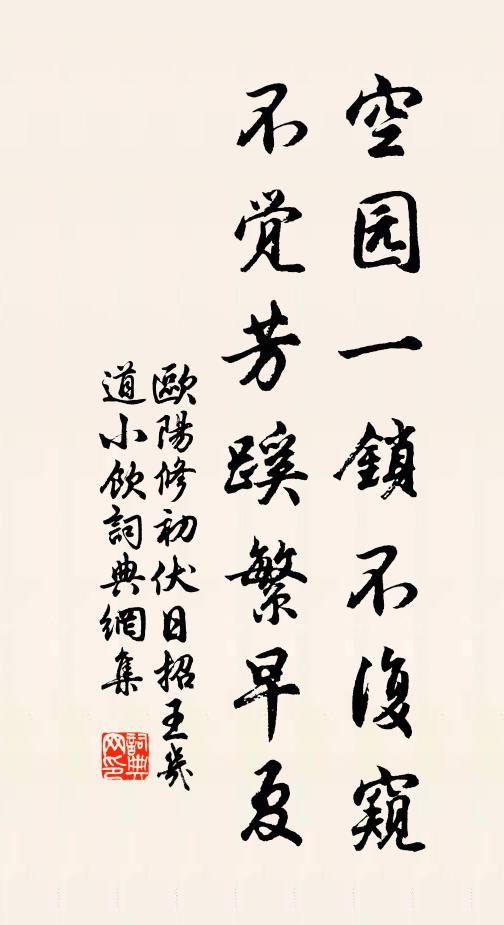 空园一鎖不復窺
不覚芳蹊繁早夏
歐陽修初伏日招王幾
道小飲詞典網集
詞典
网印